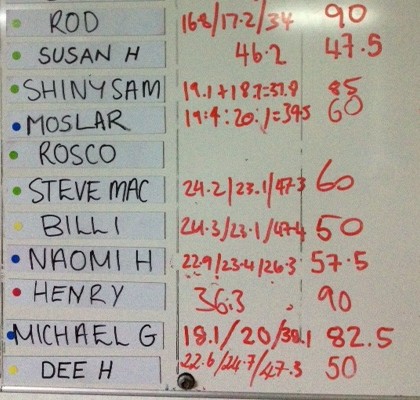 ROD 16.8/17.2/34 90
SUSAN H 46.2 47.5
SHINY SAM 19.1+18.7=37.8 85
MOSLAR 19:4:20:1=39.5 60
ROSCO
STEVE MAC 24.2/23.1/47.3 60
BILLI 24.3/23.1/47.4 50
NAOMI H 22.9/23.4/26.3 57.5
HENRY 36.3 90
MICHAEL G 18.1/20/38.1 82.5
DEE H 22.6/24.7/47.3 50